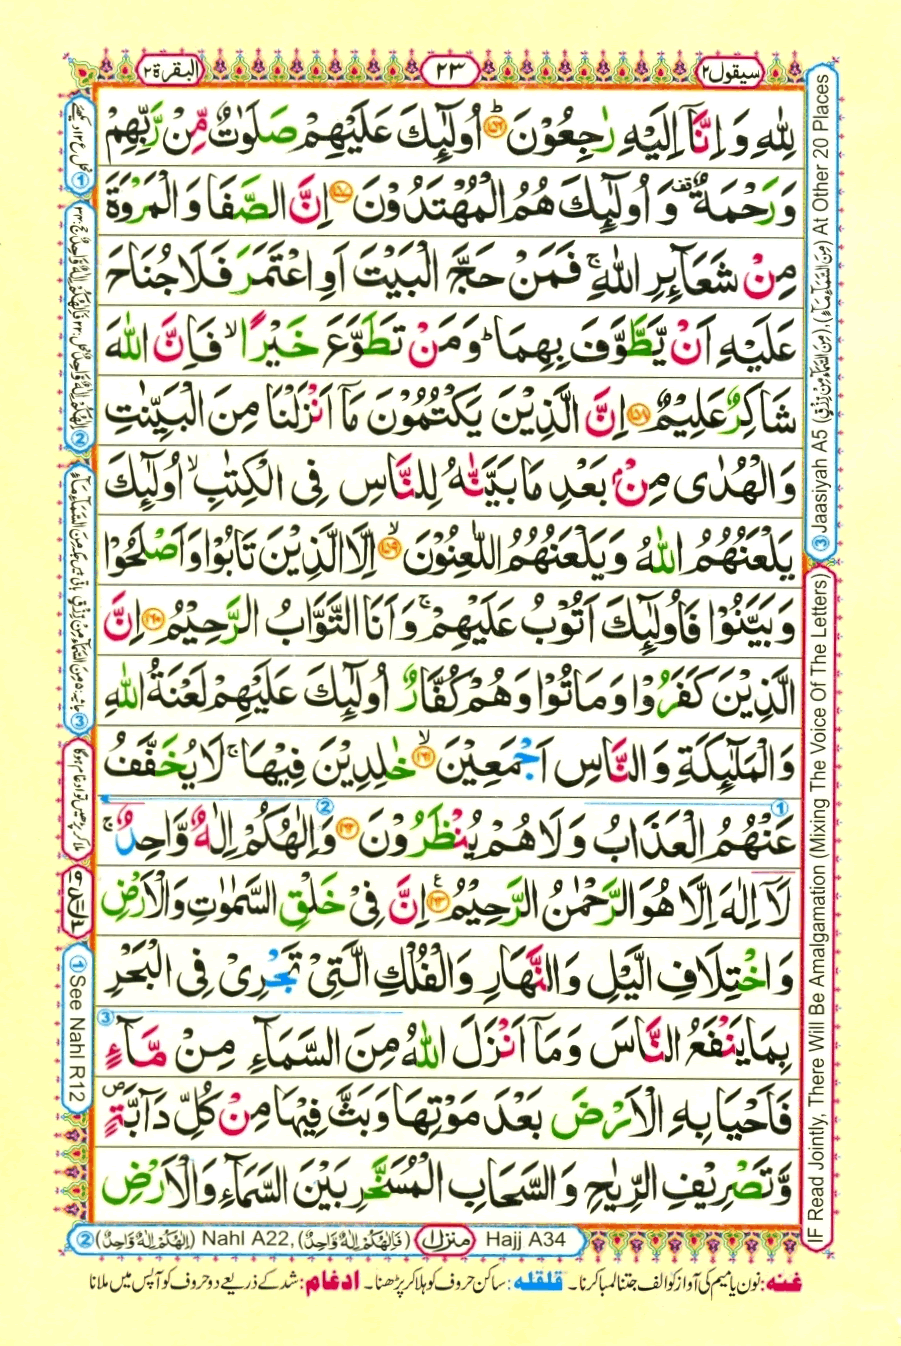 سيقول٢ ٢٣ البقرة٢
لِلّٰهِ وَ اِنَّاۤ اِلَيْهِ رٰجِعُوْنَ ؕ﴿۱۵۶﴾ اُولٰٓئِكَ عَلَيْهِمْ صَلَوٰتٌ مِّنْ رَّبِّهِمْ
وَرَحْمَةٌ ۫ وَ اُولٰٓئِكَ هُمُ الْمُهْتَدُوْنَ ﴿۱۵۷﴾ اِنَّ الصَّفَا وَ الْمَرْوَةَ
مِنْ شَعَآئِرِ اللّٰهِ ۚ فَمَنْ حَجَّ الْبَيْتَ اَوِ اعْتَمَرَ فَلَا جُنَاحَ
عَلَيْهِ اَنْ يَّطَّوَّفَ بِهِمَا ؕ وَ مَنْ تَطَوَّعَ خَيْرًا ۙ فَاِنَّ اللّٰهَ
شَاكِرٌ عَلِيْمٌ ﴿۱۵۸﴾ اِنَّ الَّذِيْنَ يَكْتُمُوْنَ مَاۤ اَنْزَلْنَا مِنَ الْبَيِّنٰتِ
وَالْهُدٰى مِنْۢ بَعْدِ مَا بَيَّنّٰهُ لِلنَّاسِ فِى الْكِتٰبِ ۙ اُولٰٓئِكَ
يَلْعَنُهُمُ اللّٰهُ وَيَلْعَنُهُمُ اللّٰعِنُوْنَ ۙ﴿۱۵۹﴾ اِلَّا الَّذِيْنَ تَابُوْا وَاَصْلَحُوْا
وَبَيَّنُوْا فَاُولٰٓئِكَ اَتُوْبُ عَلَيْهِمْ ۚ وَ اَنَا التَّوَّابُ الرَّحِيْمُ ﴿۱۶۰﴾ اِنَّ
الَّذِيْنَ كَفَرُوْا وَمَاتُوْا وَهُمْ كُفَّارٌ اُولٰٓئِكَ عَلَيْهِمْ لَعْنَةُ اللّٰهِ
وَالْمَلٰٓئِكَةِ وَ النَّاسِ اَجْمَعِيْنَ ۙ﴿۱۶۱﴾ خٰلِدِيْنَ فِيْهَا ۚ لَا يُخَفَّفُ
عَنْهُمُ الْعَذَابُ وَلَا هُمْ يُنْظَرُوْنَ ﴿۱۶۲﴾ وَاِلٰهُكُمْ اِلٰهٌ وَّاحِدٌ ۚ
لَاۤ اِلٰهَ اِلَّا هُوَ الرَّحْمٰنُ الرَّحِيْمُ ﴿۱۶۳﴾ اِنَّ فِىْ خَلْقِ السَّمٰوٰتِ وَالْاَرْضِ
وَاخْتِلَافِ الَّيْلِ وَالنَّهَارِ وَالْفُلْكِ الَّتِىْ تَجْرِىْ فِى الْبَحْرِ
بِمَا يَنْفَعُ النَّاسَ وَمَاۤ اَنْزَلَ اللّٰهُ مِنَ السَّمَآءِ مِنْ مَّآءٍ
فَاَحْيَا بِهِ الْاَرْضَ بَعْدَ مَوْتِهَا وَبَثَّ فِيْهَا مِنْ كُلِّ دَآبَّةٍ ۪
وَّتَصْرِيْفِ الرِّيٰحِ وَالسَّحَابِ الْمُسَخَّرِ بَيْنَ السَّمَآءِ وَالْاَرْضِ
③ Jaasiyah A5 (مِنَ السَّمَآءِ مِنْ رِّزْقٍ), (مِنَ السَّمَآءِ مَآءً) At Other 20 Places
IF Read Jointly, There Will Be Amalgamation (Mixing The Voice Of The Letters)
① See Nahl R12
② (اِلٰهُكُمْ اِلٰهٌ وَّاحِدٌ) Nahl A22, (فَاِلٰهُكُمْ اِلٰهٌ وَّاحِدٌ) منزل١ Hajj A34
غنه: نون یا میم کی آواز کو الف جتنا لمبا کرنا۔ قلقله: ساکن حروف کو ہلا کر پڑھنا۔ ادغام: شد کے ذریعے دو حروف کو آپس میں ملانا